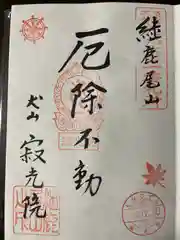 継鹿尾山
厄除不動
犬山
寂光院